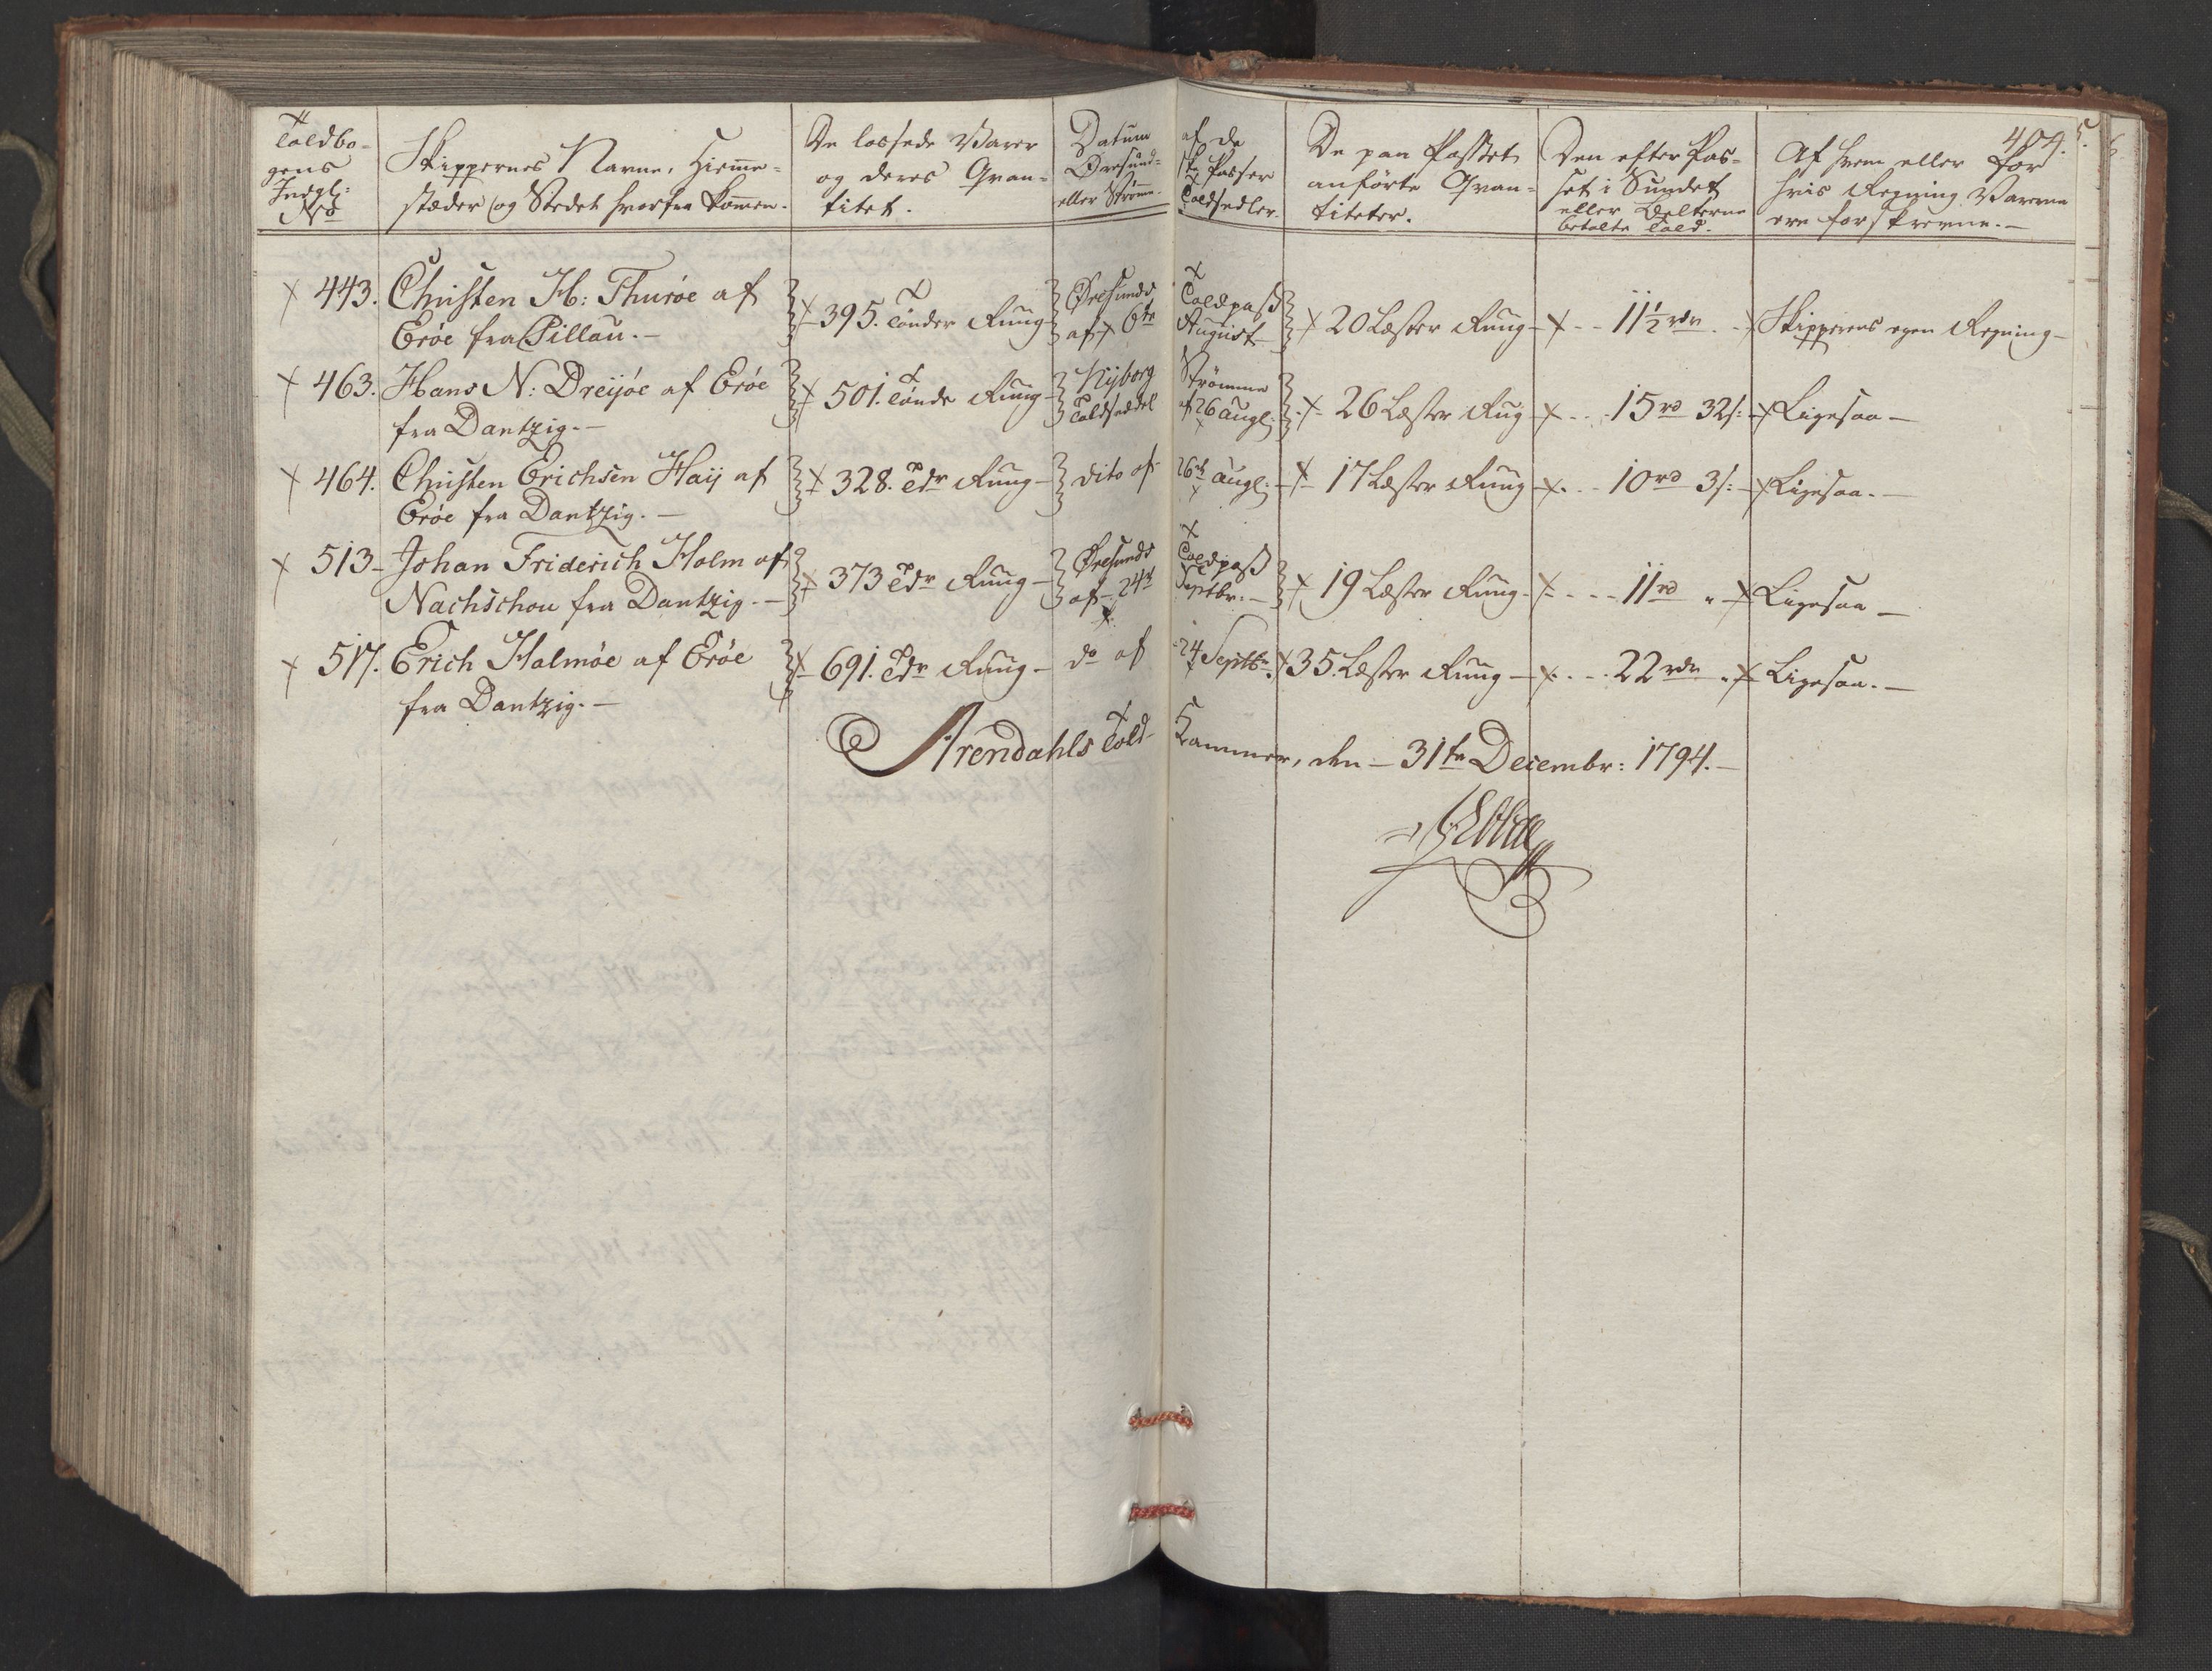 Toldbo-
gens
Indgl:
No
Skippernes Navne, Hiemme-
stæder og Stedet hvorfra kommen.
De lossede Varer
og deres Qvan-
titet.
Datum af de
Øresund-ske Passer
eller Strömme-Toldsedler.
De paa Passet
anførte Qvan-
titeter.
Den efter Pas-
set i Sundet
eller Belterne
betalte Told.
404.
Af hvem eller for
hvis Regning Varerne
ere forskrevne.-
443. Christen H: Thuröe af
Eröe fra Pillau.-
395. Tönder Rug
Øresunds Toldpass
af 6te August
20 Læster Rug
11½ rdr
Skipperens egen Regning-
463. Hans N: Dreijöe af Eröe
fra Dantzig.-
501. Tönde Rug
Nyborg Strömme
Toldseddel af 26 Aug:
26 Læster Rug
15 rd 32 s:
Ligesaa-
464. Christen Erichsen Haij af
Eröe fra Dantzig.-
328. Tdr Rug-
dito af 26de Aug:
17 Læster Rug
10 rd 3 s:
Ligesaa.-
513- Johan Friderich Holm af
Nachschou fra Dantzig.-
373 Tdr Rug-
Øresunds Toldpass
af 24de Septbr.-
19 Læster Rug
11 rd "
Ligesaa-
517. Erich Halmöe af Eröe
fra Dantzig.-
691. Tdr Rug-
do af 24 Septbr.
35. Læster Rug-
22 rdr "
Ligesaa.-
Arendahls Told-Kammer, den - 31te Decembr: 1794.-